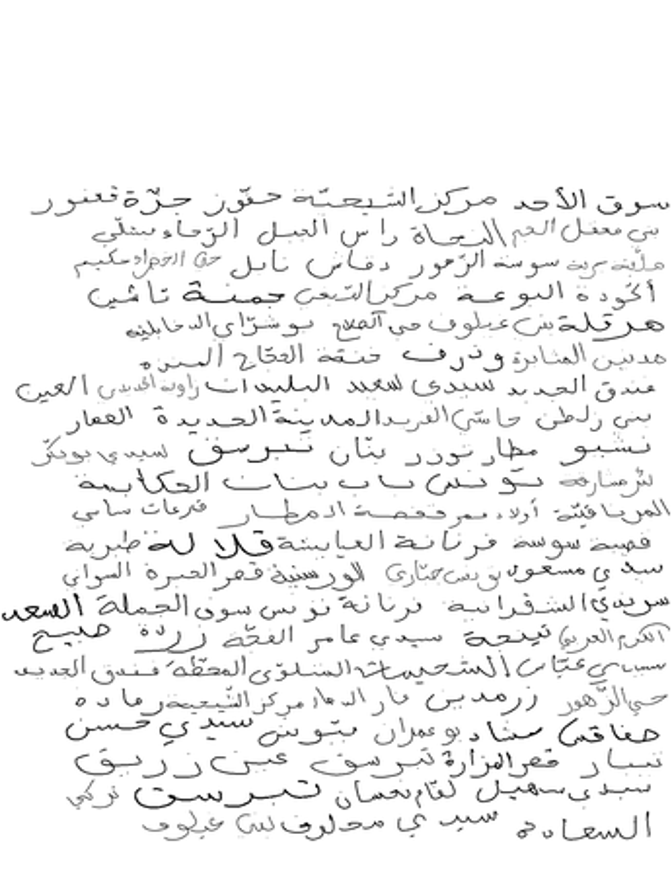 سوق الأحد مركز الشيحيّة حفّوز جزّة قعفور
بني معقل الخيم النجاة راس الجبل الرّجاء منلّي
سوسة الزّهور دقاش نابل حيّ الخضراء مكيم
أكّودة البوعة مركز الشعب جمنة تاشين
هرقلة بني غيلوف حي الصلاح بو شرّاي الدخايلية
مدنين المنابرة وذرف خنقة الحجّاج السنده
فندق الجديد سيدي سعيد البليدات زاوية الجديدي العين
بني زلطن حاسي الفريد المدينة الجديدة القمار
نشيو مطار توزر بنّان تبرسق سيدي بوبكر
بئر صارقة تونس باب بنات العكايسة
المريافيّة أولاد معمر قفصة المطار قرعات ساسي
قصبة سوسة فرنانة العيايشة قلالة طبرية
سيدي مسعود بوبس ختاري الورسنية قصر الحيرة السواني
سريدي الشفرانية فرنانة تونس سوق الجملة السعد
الكرم الغربي تينجة سيدي عامر الفجّة زردة صبيح
سيدي عيّاش الشحيمات السلوى المحطّة فندق الجديد
حي الزّهور زرمدين مركز الشيحية رمادة
صفاقس سناد بوعمران بتونس سيدي حسن
نبيار قصر المزارة تبرسق عين زريق
سيدي سهيل لقام نعسان تبرسق تركي
السعادة سيدي مخلوف بني غيلوف